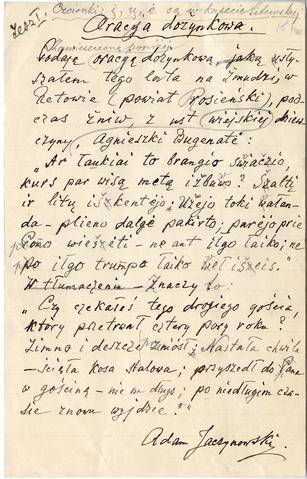 Zesz I.
Czcionki: š, ų, ė są w
Oracya dożynkowa.
Podaję oracyę dożynkową, jaką usły-
szałem tego lata na Żmudzi w
Retowie (powiat Rosieński), pod-
czas żniw, z ust wiejskiej dziew-
czyny, Agnieszki Bugenate:
„Ar taukiai to brangio svaczio,
kurs par wisą metą iżbuwo? Szalti
ir litų iszkentėjo; Użejo toki walan-
da - plieno dalgė pakirto; parėjo prie
Pono wieszėti - ne ant ilgo laiko; ne
po ilgo trumpo laiko wėl iszeis."
W tłumaczeniu - Znaczy to:
„Czy czekałeś tego drogiego gościa
który przetrwał cztery pory roku?
Zimno i deszcze zniósł; Nastała chwila
- ścięła kosa stalowa; przyszedł do Pana
w gościnę - nie na długo; po niedługim cza-
sie znowu wyjdzie."
Adam Jaczynowski.